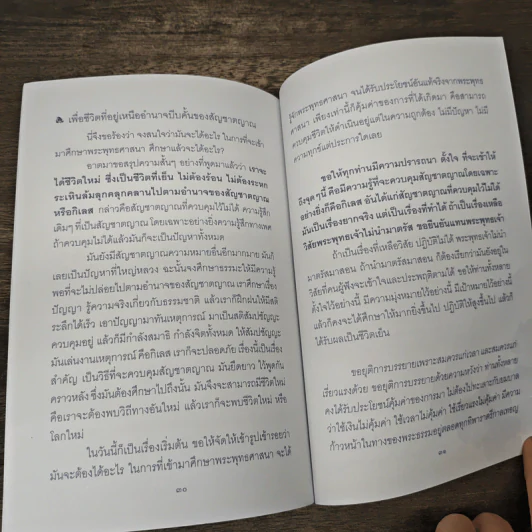 เพื่อชีวิตที่อยู่เหนืออำนาจบีบคั้นของสัญชาตญาณ
นี่จึงขอร้องว่า จงสนใจว่ามันจะได้อะไร ในการที่จะเข้า
มาศึกษาพระพุทธศาสนา ศึกษาแล้วจะได้อะไร?
อาตมาขอสรุปความสั้นๆ อย่างที่พูดมาแล้วว่า เราจะ
ได้ชีวิตใหม่ ซึ่งเป็นชีวิตที่เย็น ไม่ต้องร้อน ไม่ต้องระหก
ระเหินล้มลุกคลุกคลานไปตามอำนาจของสัญชาตญาณ
หรือกิเลส กล่าวคือสัญชาตญาณที่ควบคุมไว้ไม่ได้ ความรู้สึก
เดิมๆ ที่เป็นสัญชาตญาณ โดยเฉพาะอย่างยิ่งความรู้สึกทางเพศ
ถ้าควบคุมไม่ได้แล้วมันก็จะเป็นปัญหาทั้งหมด
มันยังมีสัญชาตญาณความหมายอื่นอีกมากมาย มันก็
เลยเป็นปัญหาที่ใหญ่หลวง ฉะนั้นจงศึกษาธรรมะให้มีความรู้
พอที่จะไม่ปล่อยไปตามอำนาจของสัญชาตญาณ เราศึกษาเรื่อง
ปัญญา รู้ความจริงเกี่ยวกับธรรมชาติ แล้วเราก็ฝึกฝนให้มีสติ
ระลึกได้เร็ว เอาปัญญามาทันเหตุการณ์ มาเป็นสติสัมปชัญญะ
ควบคุมอยู่ แล้วก็มีกำลังสมาธิ กำลังจิตทั้งหมด ให้สัมปชัญญะ
มันเล่นงานเหตุการณ์ คือกิเลส เราก็จะปลอดภัย เรื่องนี้เป็นเรื่อง
สำคัญ เป็นวิธีที่จะควบคุมสัญชาตญาณ มันยืดยาว ไว้พูดกัน
คราวหลัง ซึ่งมันต้องศึกษาไปถึงนั้น มันจึงจะสามารถมีชีวิตใหม่
คือเราจะต้องพบวิถีทางอันใหม่ แล้วเราก็จะพบชีวิตใหม่ หรือ
โลกใหม่
ในวันนี้ก็เป็นเรื่องเริ่มต้น ขอให้จัดให้เข้ารูปเข้ารอยว่า
มันจะต้องได้อะไร ในการที่เข้ามาศึกษาพระพุทธศาสนา จะได้
๓๐
รู้จักพระพุทธศาสนา จนได้รับประโยชน์อันแท้จริงจากพระพุทธ
ศาสนา เพียงเท่านี้ก็คุ้มค่าของการที่ได้เกิดมา คือสามารถ
ควบคุมชีวิตให้ดำเนินอยู่แต่ในความถูกต้อง ไม่มีปัญหา ไม่มี
ความทุกข์แต่ประการใดเลย
ขอให้ทุกท่านมีความปรารถนา ตั้งใจ ที่จะเข้าให้
ถึงจุดๆนี้ คือมีความรู้ที่จะควบคุมสัญชาตญาณโดยเฉพาะ
อย่างยิ่งก็คือกิเลส อันได้แก่สัญชาตญาณที่ควบคุมไว้ไม่ได้
มันเป็นเรื่องยากจริง แต่เป็นเรื่องที่ทำได้ ถ้าเป็นเรื่องเหลือ
วิสัยพระพุทธเจ้าไม่นำมาตรัส ขอยืนยันแทนพระพุทธเจ้า
ถ้าเป็นเรื่องที่เหลือวิสัย ปฏิบัติไม่ได้ พระพุทธเจ้าไม่นำ
มาตรัสมาสอน ถ้านำมาตรัสมาสอน ก็ต้องเรียกว่ามันยังอยู่ใน
วิสัยที่คนผู้ฟังจะเข้าใจและประพฤติตามได้ ขอให้ท่านทั้งหลาย
ตั้งใจไว้อย่างนี้ มีความมุ่งหมายไว้อย่างนี้ มีเป้าหมายไว้อย่างนี้
แล้วก็คงจะได้ศึกษาให้มากยิ่งขึ้นไป ปฏิบัติให้สูงขึ้นไป แล้วก็
ได้รับผลเป็นชีวิตเย็น
ขอยุติการบรรยายเพราะสมควรแก่เวลา และสมควรแก่
เรี่ยวแรงด้วย ขอยุติการบรรยายด้วยความหวังว่า ท่านทั้งหลาย
คงได้รับประโยชน์คุ้มค่าของการมา ไม่ต้องไปละอายกับลมบาส
ว่าใช้เงินไม่คุ้มค่า ใช้เวลาไม่คุ้มค่า ใช้เรี่ยวแรงไม่คุ้มค่า มีความ
ก้าวหน้าในทางของพระธรรมอยู่ตลอดทุกทิพาราตรีกาลเทอญ
๓๑